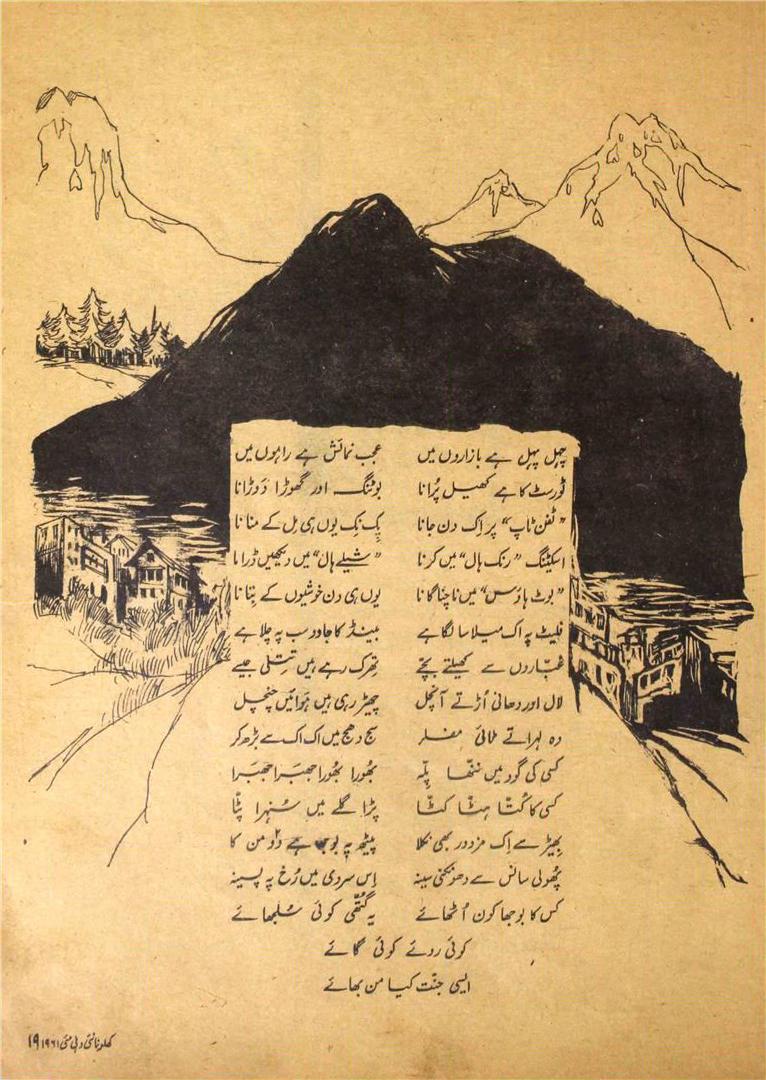 چہل پہل ہے بازاروں میں عجب نمائش ہے راہوں میں
ٹورسٹ کا ہے کھیل پُرانا بوٹنگ اور گھوڑا دَوڑانا
”ٹفن ٹاپ“ پر اِک دن جانا پِک نِک یوں ہی مِل کے منانا
اسکیٹنگ ”رنک ہال“ میں کرنا ”شیلے ہال“ میں دیکھیں ڈراما
”بوٹ ہاؤس“ میں ناچنا گانا یوں ہی دن خوشیوں کے بِتانا
فلیٹ پہ اک میلا سا لگا ہے بینڈ کا جادو سب پہ چلا ہے
غبّاروں سے کھیلتے بچّے تِھرک رہے ہیں تِتلی جیسے
لال اور دھانی اُڑتے آنچل چھیڑ رہی ہیں ہَوائیں چنچل
وہ لہراتے ٹائی مفلر سج دھج میں اک اک سے بڑھ کر
کسی کی گود میں ننّھا پِلّہ بُھورا بُھورا جھبرا جھبرا
کسی کا کُتّا ہٹّا کٹّا پڑا گلے میں سُنہرا پٹّا
بِھیڑ سے اِک مزدور بھی نکلا پیٹھ پہ بوجھ ہے دَو من کا
پُھولی سانس ہے دھونکنی سینہ اِس سردی میں رُخ پہ پسینہ
کس کا بوجھا کون اُٹھائے یہ گُتّھی کوئی سُلجھائے
کوئی روئے کوئی گائے
ایسی جنّت کیا من بھائے
کھلونا نئی دہلی مئی ۱۹۶۱ ۱۹